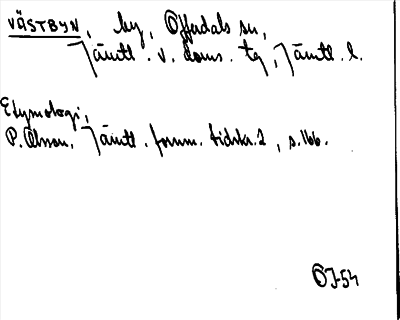 VÄSTBYN, by, Offerdals sn,
Jämtl. v. doms. tg, Jämtl. l.
Etymologi;
P. Olsson, Jämtl. fornm. tidskr. 2, s. 166.
OJ-54